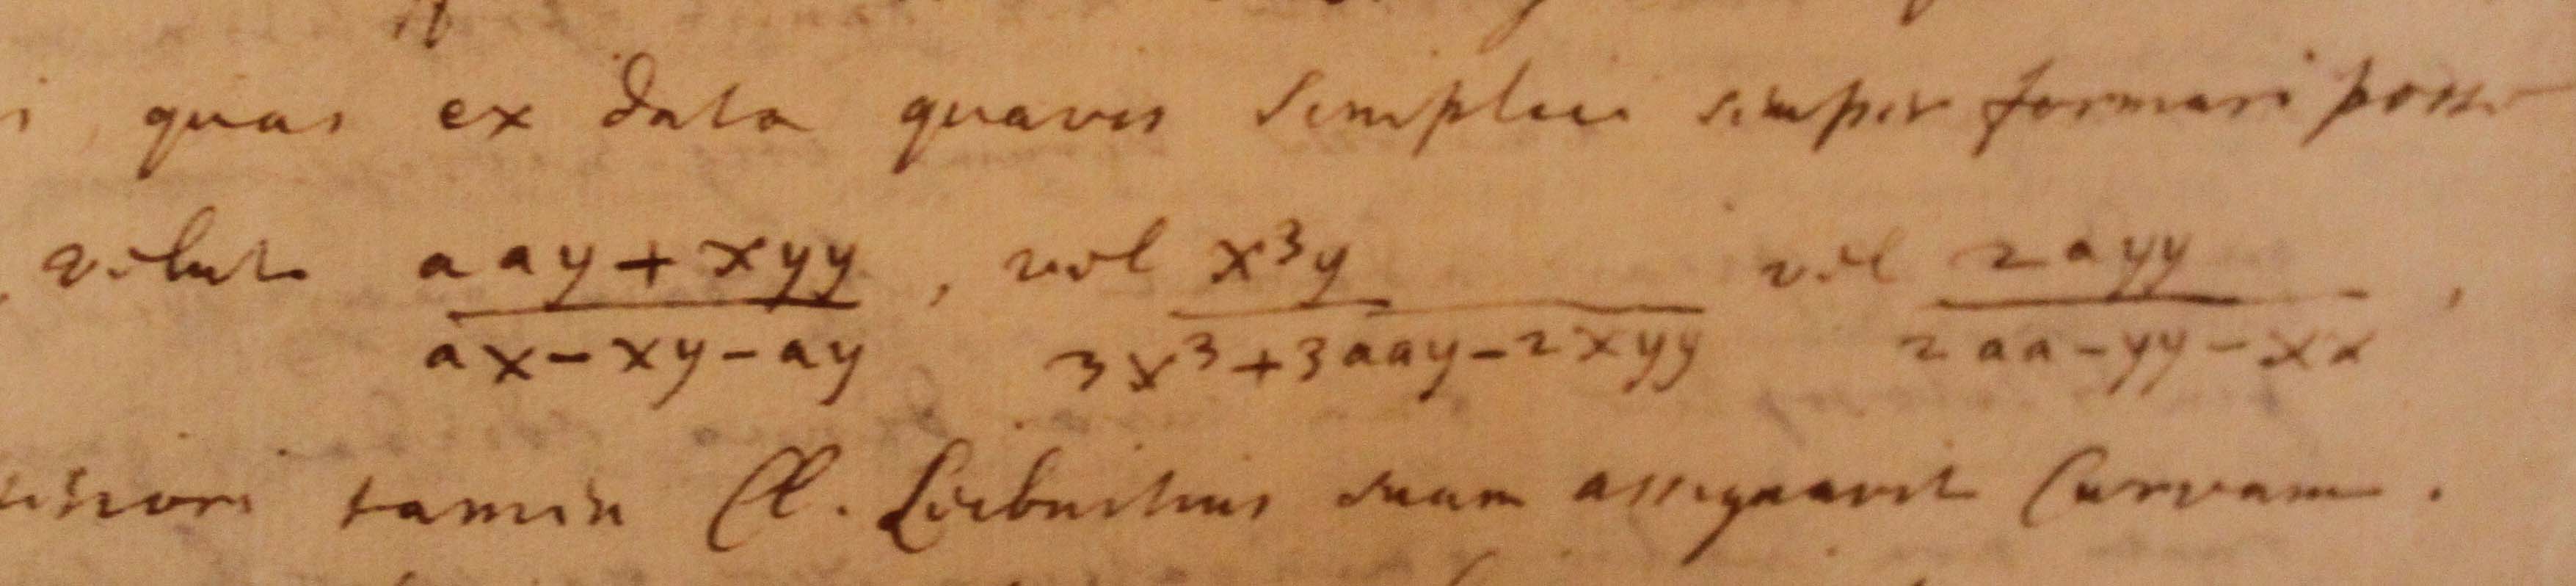 quas ex data quavis simplici semper formari posse
velut aay + xyy / ax - xy - ay , vel x³y / 3x³ + 3aay - 2xyy vel 2ayy / 2aa - yy - xx ,
tamen Cl. Leibnitius suam assignavit Curvam .